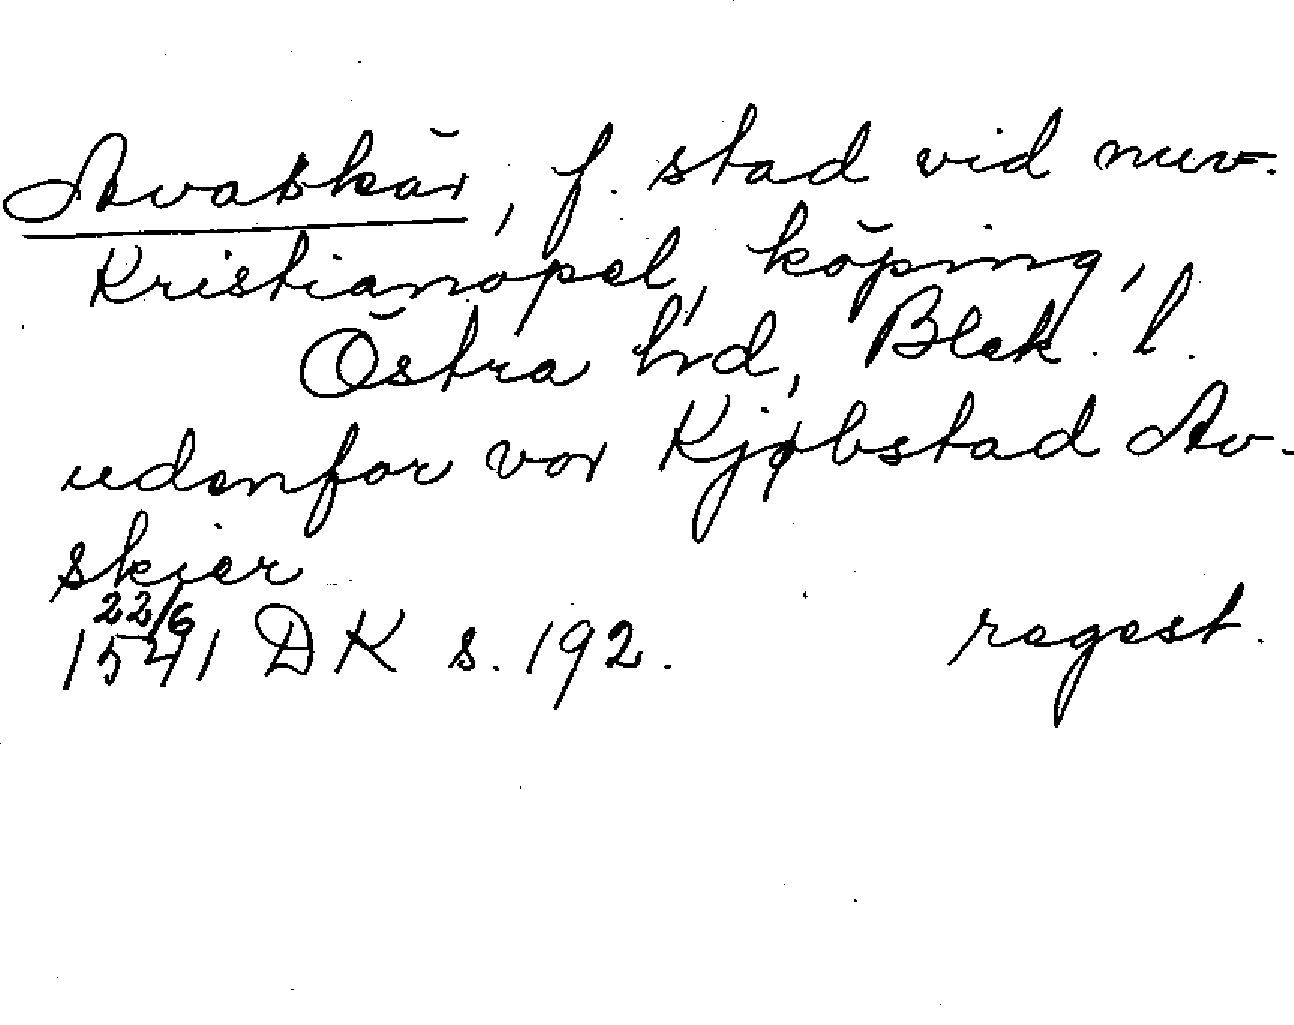 Avaskär, f. stad vid nuv.
Kristianopel, köping,
Östra hd, Blek. l.
udenfor vor Kjøbstad Av-
skier
22/6
1541 DK s. 192. regest.